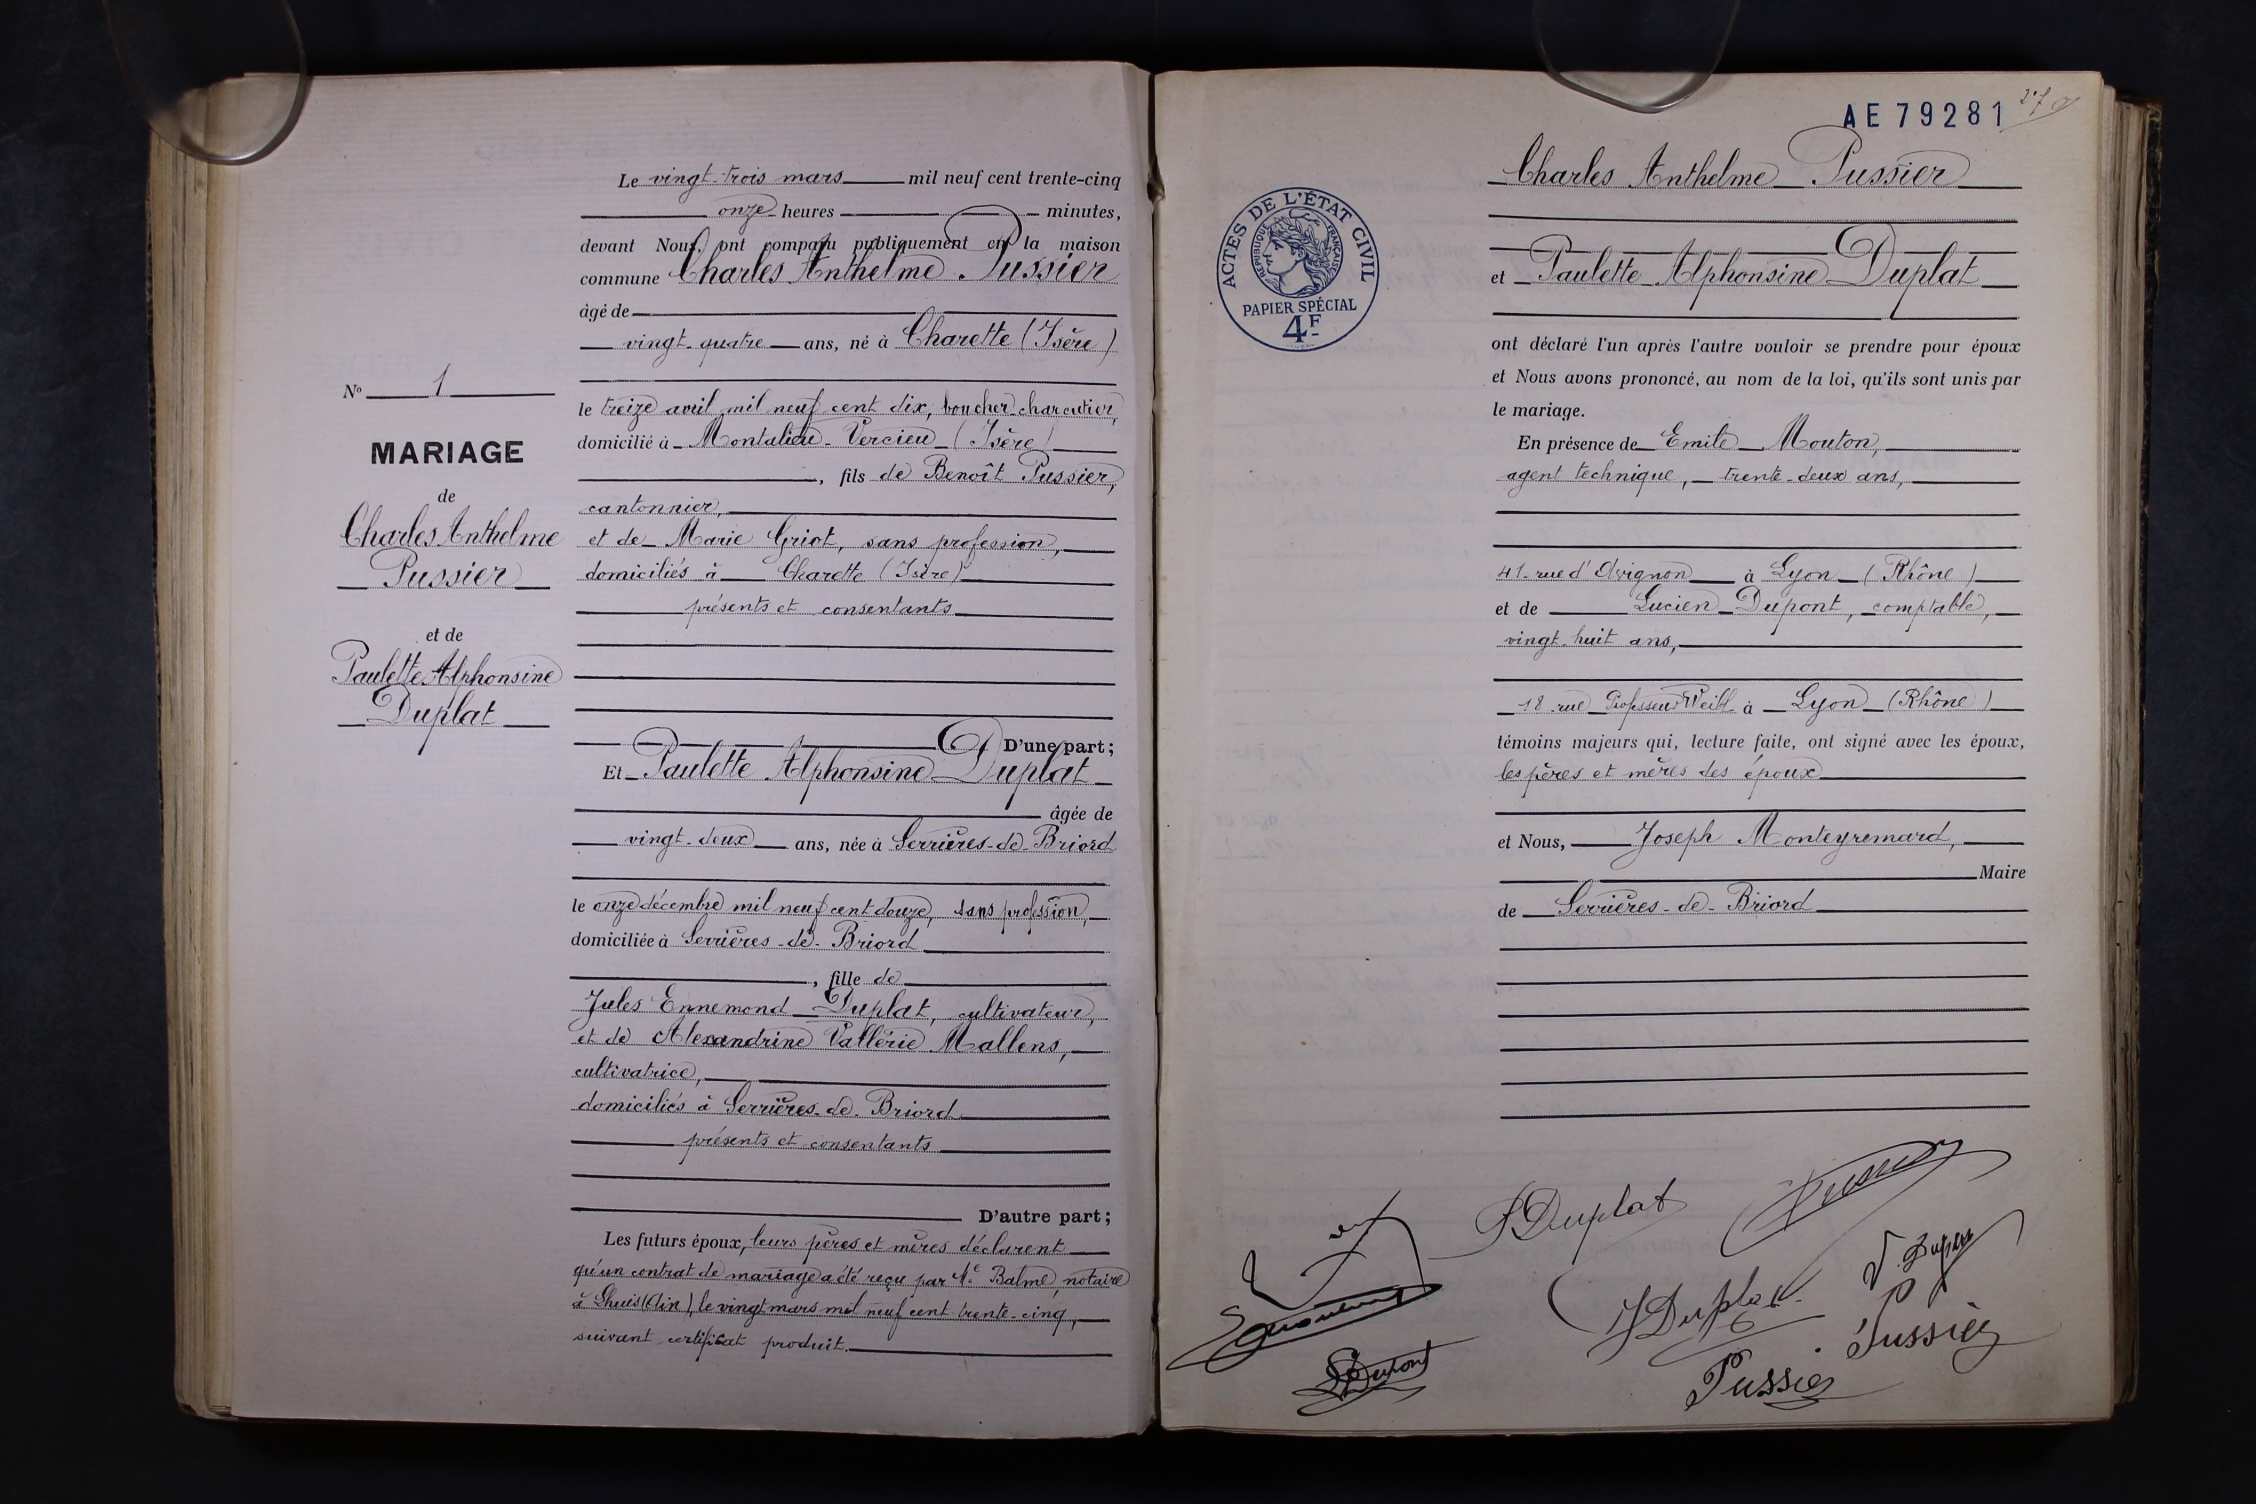 Le vingt-trois mars mil neuf cent trente-cinq
onze heures minutes,
devant Nous, ont comparu publiquement en la maison
commune Charles Anthelme Pussier
âgé de
vingt-quatre ans, né à Charette (Isère)
le treize avril mil neuf cent dix, boucher-charcutier,
domicilié à Montalieu-Vercieu (Isère)
, fils de Benoît Pussier,
cantonnier,
et de Marie Griot, sans profession,
domiciliés à Charette (Isère)
présents et consentants
D'une part;
Et Paulette Alphonsine Duplat
âgée de
vingt-deux ans, née à Serrières-de-Briord
le onze décembre mil neuf cent douze, sans profession,
domiciliée à Serrières-de-Briord
, fille de
Jules Ennemond Duplat, cultivateur,
et de Alexandrine Vallérie Mallens,
cultivatrice,
domiciliés à Serrières-de-Briord
présents et consentants
D'autre part;
Les futurs époux, leurs pères et mères déclarent
qu'un contrat de mariage a été reçu par Me Balme, notaire
à Lhuis (Ain), le vingt mars mil neuf cent trente-cinq,
suivant certificat produit.
No 1
MARIAGE
de
Charles Anthelme
Pussier
et de
Paulette Alphonsine
Duplat
AE 79281
ACTES DE L'ÉTAT CIVIL
RÉPUBLIQUE FRANÇAISE
PAPIER SPÉCIAL
4F
Charles Anthelme Pussier
et Paulette Alphonsine Duplat
ont déclaré l'un après l'autre vouloir se prendre pour époux
et Nous avons prononcé, au nom de la loi, qu'ils sont unis par
le mariage.
En présence de Emile Mouton,
agent technique, trente-deux ans,
41 rue d'Avignon à Lyon (Rhône)
et de Lucien Dupont, comptable,
vingt-huit ans,
18 rue Professeur Weill à Lyon (Rhône)
témoins majeurs qui, lecture faite, ont signé avec les époux,
les pères et mères des époux
et Nous, Joseph Monteyremard,
Maire
de Serrières-de-Briord
P Duplat
Pussier
J Duplat
Pussier
L Dupont
Pussier